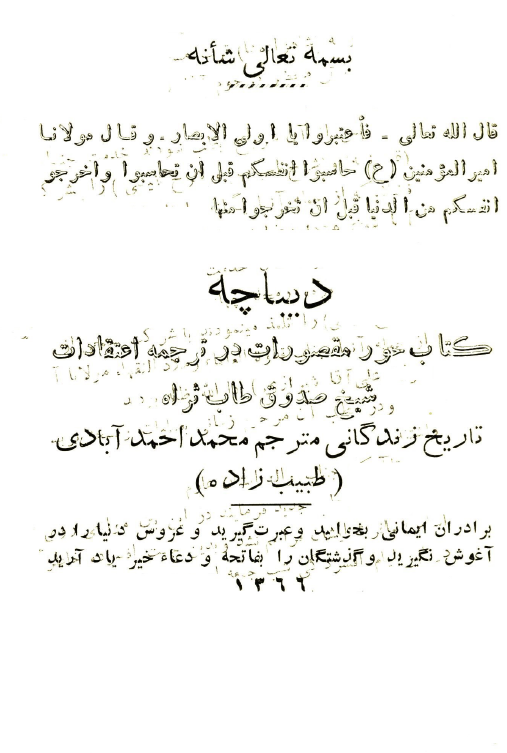 بسمه تعالی شأنه
قال الله تعالی ـ فأعتبروا یا اولی الابصار ـ و قال مولانا
امیر المؤمنین (ع) حاسبوا انفسکم قبل ان تحاسبوا واخرجو
انفسکم من الدنیا قبل ان تخرجوا منها
دیباچه
کتاب حور مقصورات در ترجمه اعتقادات
شیخ صدوق طاب ثراه
تاریخ زندگانی مترجم محمد احمد آبادی
(طبیب زاده)
برادران ایمانی بخوانید وعبرت گیرید و عروس دنیا را در
آغوش نگیرید و گذشتگان را بفاتحة و دعاء خیر یاد آرید
۱۳۶۶